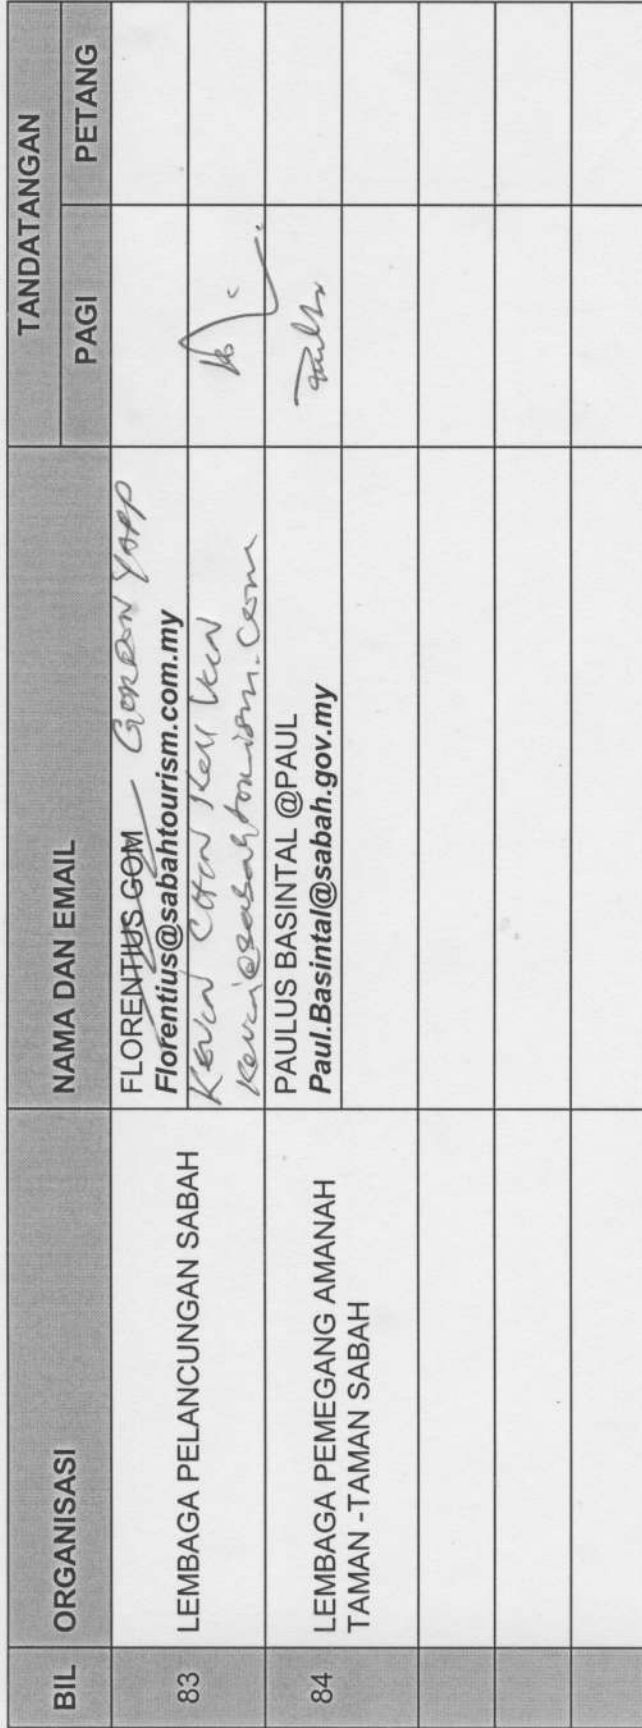 BIL ORGANISASI NAMA DAN EMAIL TANDATANGAN
PAGI PETANG
83 LEMBAGA PELANCUNGAN SABAH
FLORENTIUS GOM GORDON YAPP
Florentius@sabahtourism.com.my
KEVIN CHIN
kevin@sabahtourism.com
84 LEMBAGA PEMEGANG AMANAH
TAMAN -TAMAN SABAH
PAULUS BASINTAL @PAUL
Paul.Basintal@sabah.gov.my